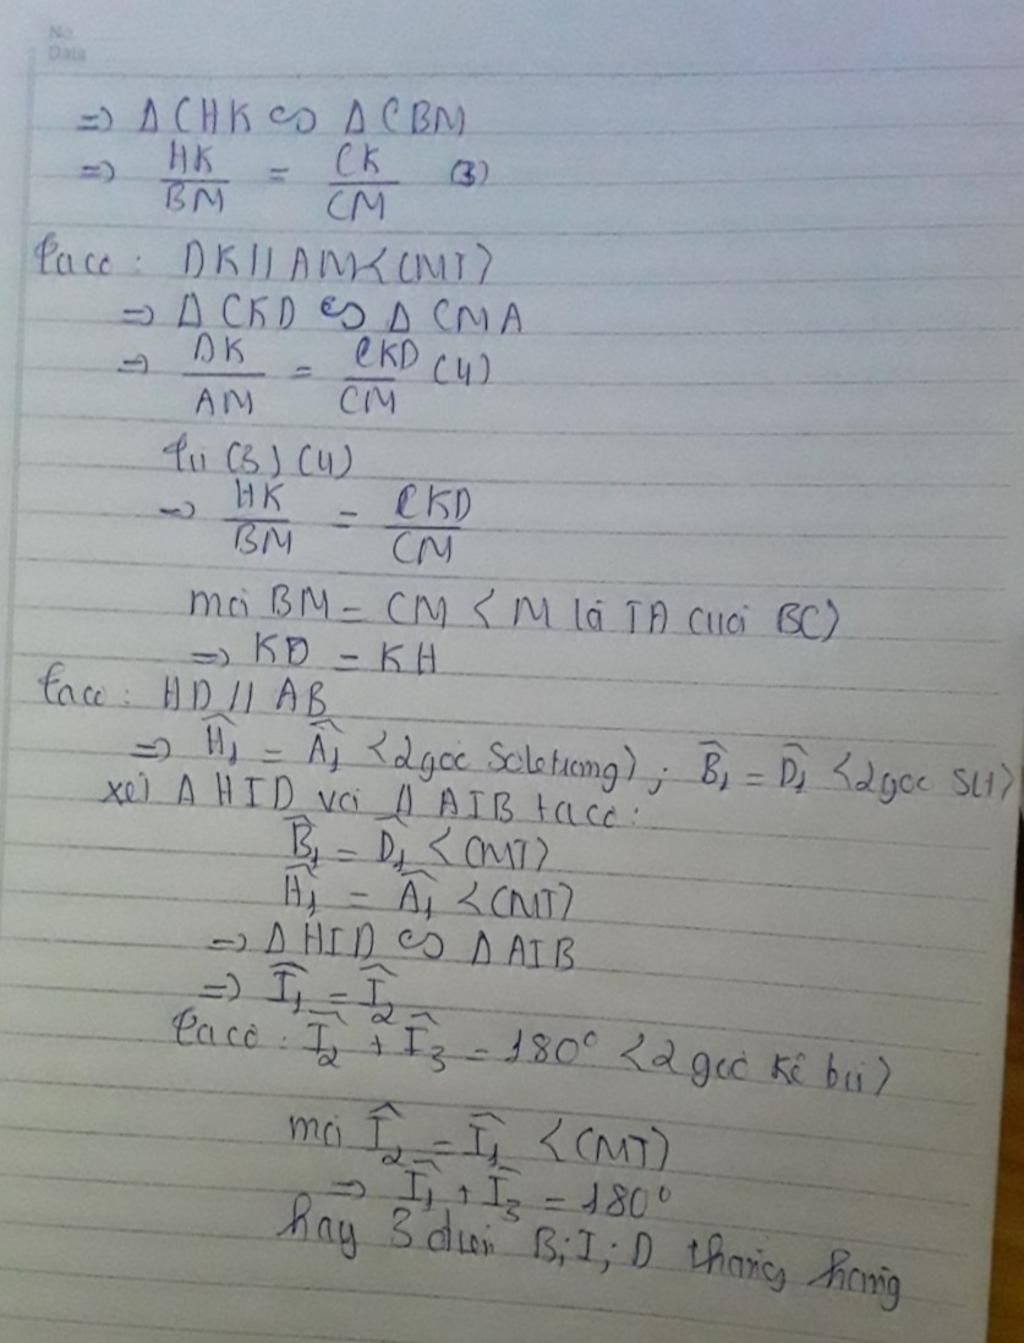 No.
Date
=> Δ CHK ∽ Δ CBM
=> HK/BM = CK/CM (3)
Ta có : DK // AM <CMT>
=> Δ CKD ∽ Δ CMA
=> DK/AM = CKD/CM (4)
Từ (3) (4)
=> HK/BM = CKD/CM
mà BM = CM < M là TĐ của BC>
=> KD = KH
Ta có : HD // AB
=> Ĥ₁ = Â₁ <2 góc so le trong> ; B̂₁ = D̂₁ <2 góc SLT>
xét Δ HID và Δ AIB ta có :
B̂₁ = D̂₁ <CMT>
Ĥ₁ = Â₁ <CMT>
=> Δ HID ∽ Δ AIB
=> Î₁ = Î₂
Ta có : Î₂ + Î₃ = 180° <2 góc kề bù>
mà Î₂ = Î₁ <CMT>
=> Î₁ + Î₃ = 180°
hay 3 điểm B; I; D thẳng hàng